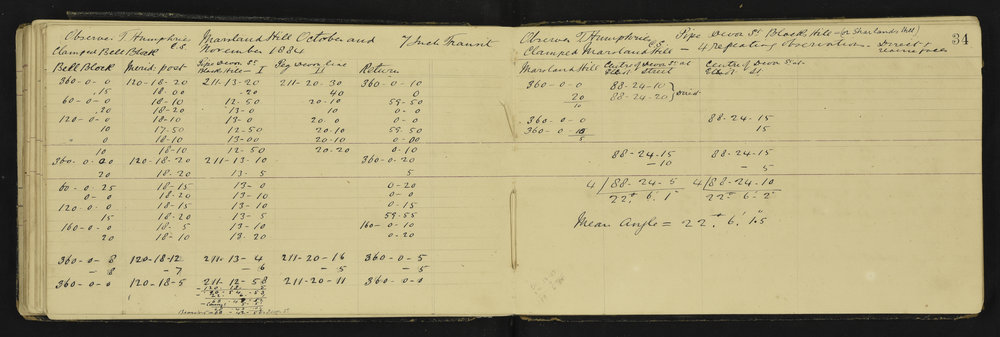 Observer T. Humphries C.S. Marsland Hill October and 7 Inch Transit
Clamped Bell Block November 1884
Bell Block Merid. post Pipe Devon St Peg Devon line Return
Block Hill - I II
360-0-0 120-18-20 211-13-20 211-20-30 360-0-10
.15 18-00 .20 40 0
60-0-0 18-10 12-50 20-10 59-50
.20 18-20 13-0 10 0-0
120-0-0 18-10 13-0 20 0 0-0
10 17-50 12-50 20-10 59-50
0 18-10 13-00 20-10 0-00
10 18-10 12-50 20-20 0-10
360-0-20 120-18-20 211-13-10 360-0-20
20 18-20 13-5 5
60-0-25 18-15 13-0 0-20
0-0 18-20 13-10 0-0
120-0-0 18-15 13-10 0-15
15 18-20 13-5 59-55
160-0-0 18-5 13-10 160-0-10
20 18-10 13-20 0-20
360-0-8 120-18-12 211-13-4 211-20-16 360-0-5
-8 -7 -6 -5 -5
360-0-0 120-18-5 211-12-58 211-20-11 360-0-0
34
Observer T. Humphries C.S. Pipe Devon St Block Hill - (for Marslands Hill)
Clamped Marsland Hill - 4 Repeating Observations. Direct +
Marsland Hill Centre of Devon St at Centre of Devon St at
Elliot Street Elliot St.
360-0-0 88-24-10
20 88-24-20
10
360-0-0 88-24-15
360-0-10 15
5
88-24-15 88-24-15
-10 - 5
4/88-24-5 4/88-24-10
22° 6' 1" 22° 6' 2"
Mean Angle = 22° 6' 1.5"